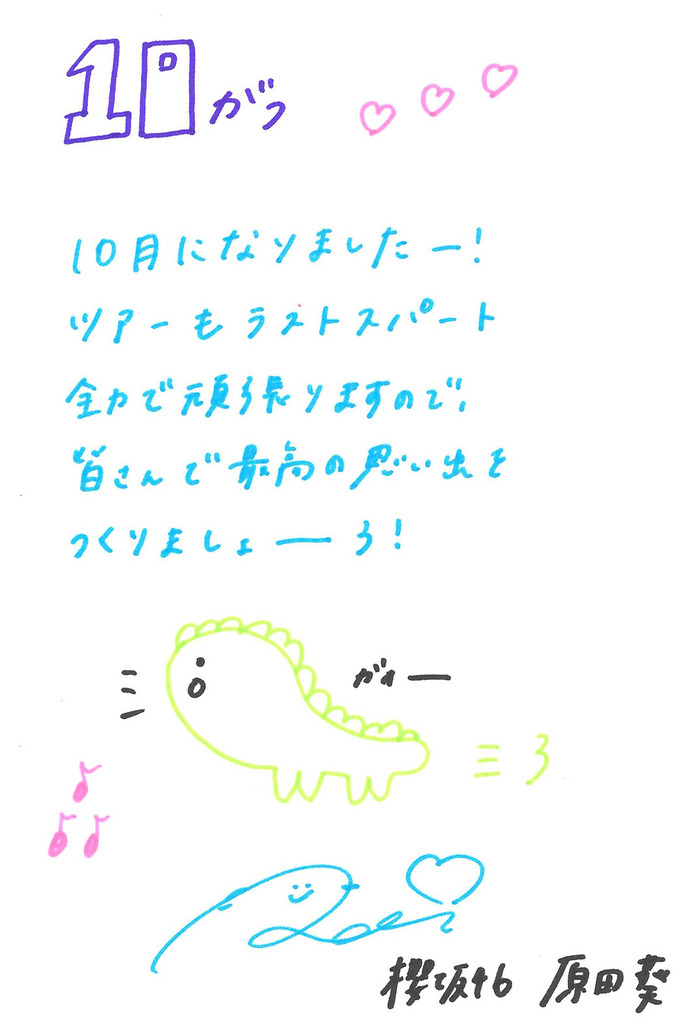 10がつ
10月になりましたー!
ツアーもラストスパート
全力で頑張りますので、
皆さんで最高の思い出を
つくりましょーう!
がおー
櫻坂46 原田葵